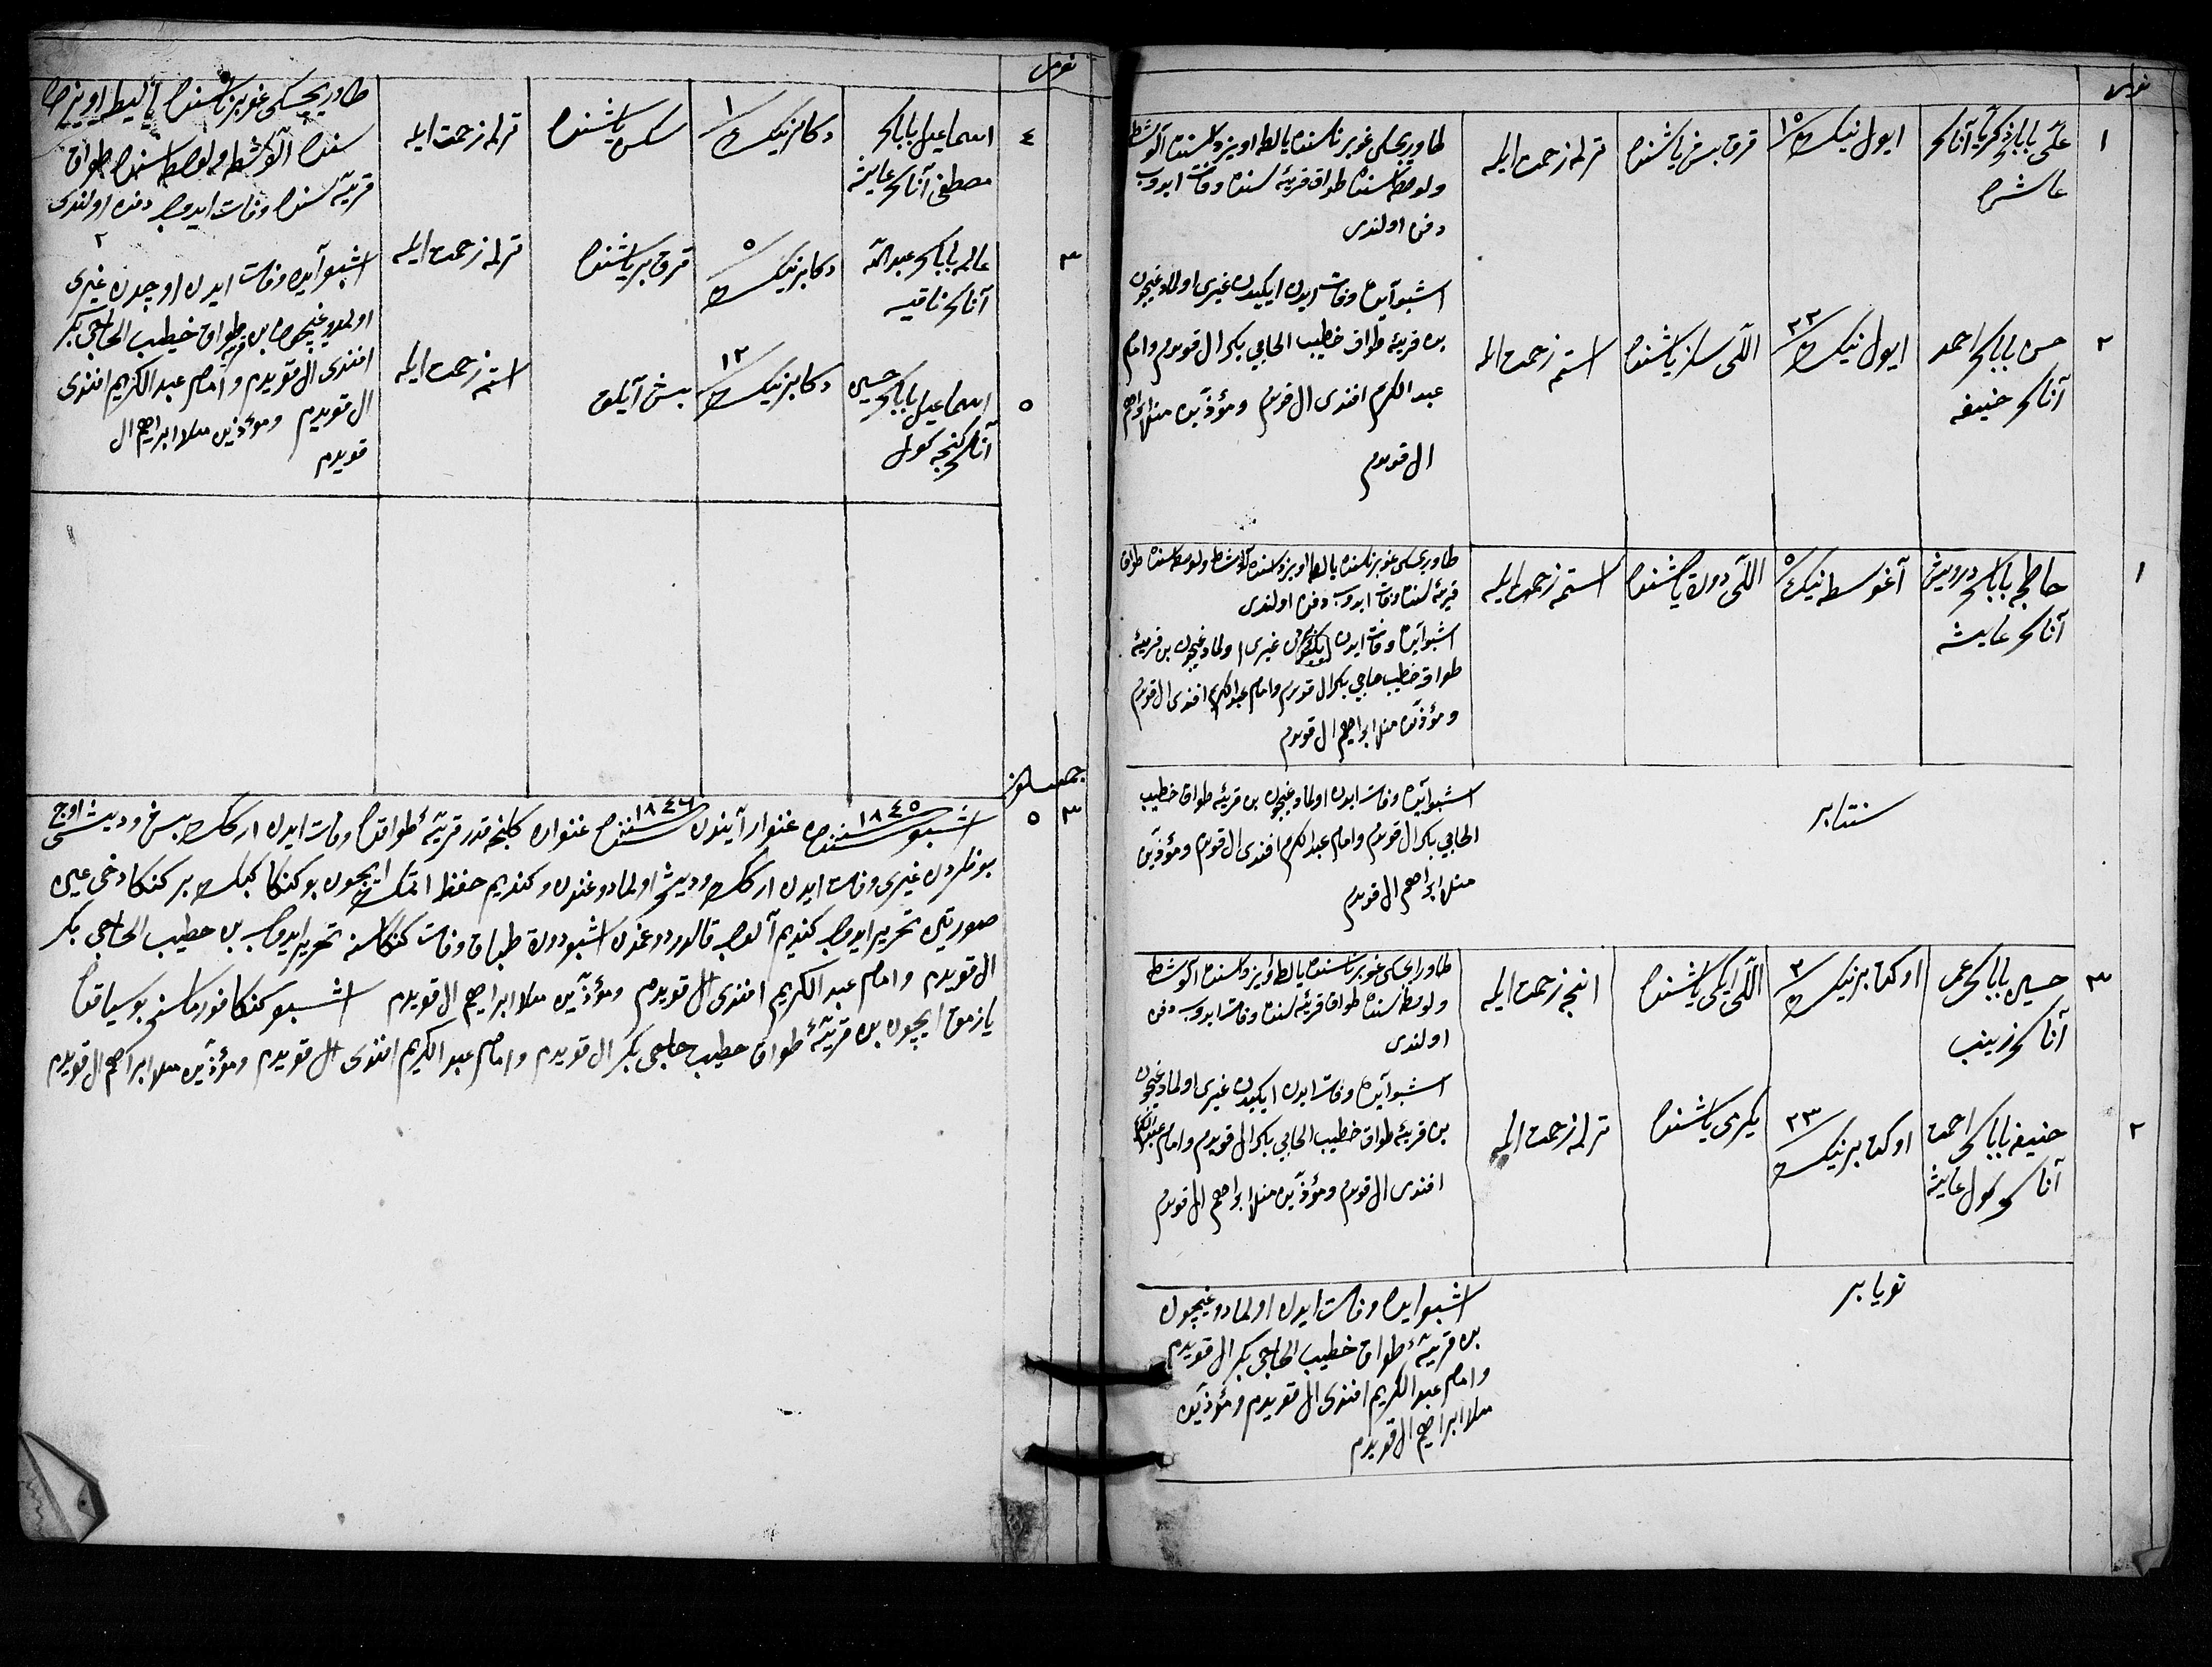 نومر
١
علی باباسی ذکریا آناسی
عاشه
ایول نیڭ ١٥
قرق بش یاشنده
ترلمه زحمت ایله
طاوریچسکی غوبرناسنده یالطه اویزدسنده آلوشطه
ولوصط سنده طواق قریه سنده وفات ایدوب
دفن اولندی
٢
حسن باباسی احمد
آناسی حنیفه
ایول نیڭ ٢٣
اللی سکز یاشنده
استمه زحمت ایله
اشبو آیده وفات ایدن ایکیدن غیری اولمادوغیچون
بن قریه طواق خطیب الحاجی بکر ال قویدم وامام
عبد الکریم افندی ال قویدم ومؤذن منلا ابراهیم
ال قویدم
١
باباسی درویش
آناسی عایشه
آغوسطه نیڭ ٥
اللی دورت یاشنده
استمه زحمت ایله
طاوریچسکی غوبرناسنده یالطه اویزدسنده آلوشطه ولوصط سنده طواق
قریه سنده وفات ایدوب دفن اولندی
اشبو آیده وفات ایدن غیری اولمادوغیچون بن قریه
طواق خطیب حاجی بکر ال قویدم وامام عبد الکریم افندی ال قویدم
ومؤذن منلا ابراهیم ال قویدم
سنتابر
اشبو آیده وفات ایدن اولمادوغیچون بن قریه طواق خطیب
الحاجی بکر ال قویدم وامام عبد الکریم افندی ال قویدم ومؤذن
منلا ابراهیم ال قویدم
٣
حسین باباسی عمر
آناسی زینب
اوکتابرنیڭ ٣
اللی ایکی یاشنده
اینجه زحمت ایله
طاوریچسکی غوبرناسنده یالطه اویزدسنده آلوشطه
ولوصط سنده طواق قریه سنده وفات ایدوب دفن
اولندی
٢
حنیفه باباسی احمد
آناسی کول عایشه
اوکتابرنیڭ ٢٣
یکرمی یاشنده
ترلمه زحمت ایله
اشبو آیده وفات ایدن ایکیدن غیری اولمادوغیچون
بن قریه طواق خطیب الحاجی بکر ال قویدم وامام عبد الکریم
افندی ال قویدم ومؤذن منلا ابراهیم ال قویدم
نویابر
اشبو ایده وفات ایدن اولمادوغیچون
بن قریه طواق خطیب الحاجی بکر ال قویدم
وامام عبد الکریم افندی ال قویدم ومؤذن
منلا ابراهیم ال قویدم
نومر
٤
اسماعیل باباسی
مصطفی آناسی عایشه
دکابرنیڭ ١
سکسن یاشنده
ترلمه زحمت ایله
طاوریچسکی غوبرناسنده یالطه اویزد
سنده آلوشطه ولوصط سنده طواق
قریه سنده وفات ایدوب دفن اولندی
٣
عالمه باباسی عبد الله
آناسی ناقیه
دکابرنیڭ ٥
قرق بر یاشنده
ترلمه زحمت ایله
٢
اشبو آیده وفات ایدن اوچدن غیری
اولمادوغیچون بن قریه طواق خطیب الحاجی بکر
افندی ال قویدم وامام عبد الکریم افندی
ال قویدم ومؤذن منلا ابراهیم ال
قویدم
٥
اسماعیل باباسی حسین
آناسی کنجه کول
دکابرنیڭ ١٣
بش آیلق
استمه زحمت ایله
٣ ٥
اشبو ١٨٤٥ سنه سنده غنوار آیندن ١٨٤٦ سنه سنده غنواره کلنجه قدر قریه طواقده وفات ایدن ارکک بش ودیشی اوچ
بونلردن غیری وفات ایدن ارکک ودیشی اولمادوغندن وکندیم حفظ اتمک ایچون بو کنکا کبک بر کنکا دخی عین
صورتین تحریر ایدوب کندیم آلوب قالوردوغمدن اشبو دورت طباق وفات کنکاسنه تحریر ایدوب بن خطیب الحاجی بکر
ال قویدم وامام عبد الکریم افندی ال قویدم ومؤذن منلا ابراهیم ال قویدم اشبو کنکا فورماسنی بو سیاقده
یازمق ایچون بن قریه طواق خطیب حاجی بکر ال قویدم وامام عبد الکریم افندی ال قویدم ومؤذن منلا ابراهیم ال قویدم